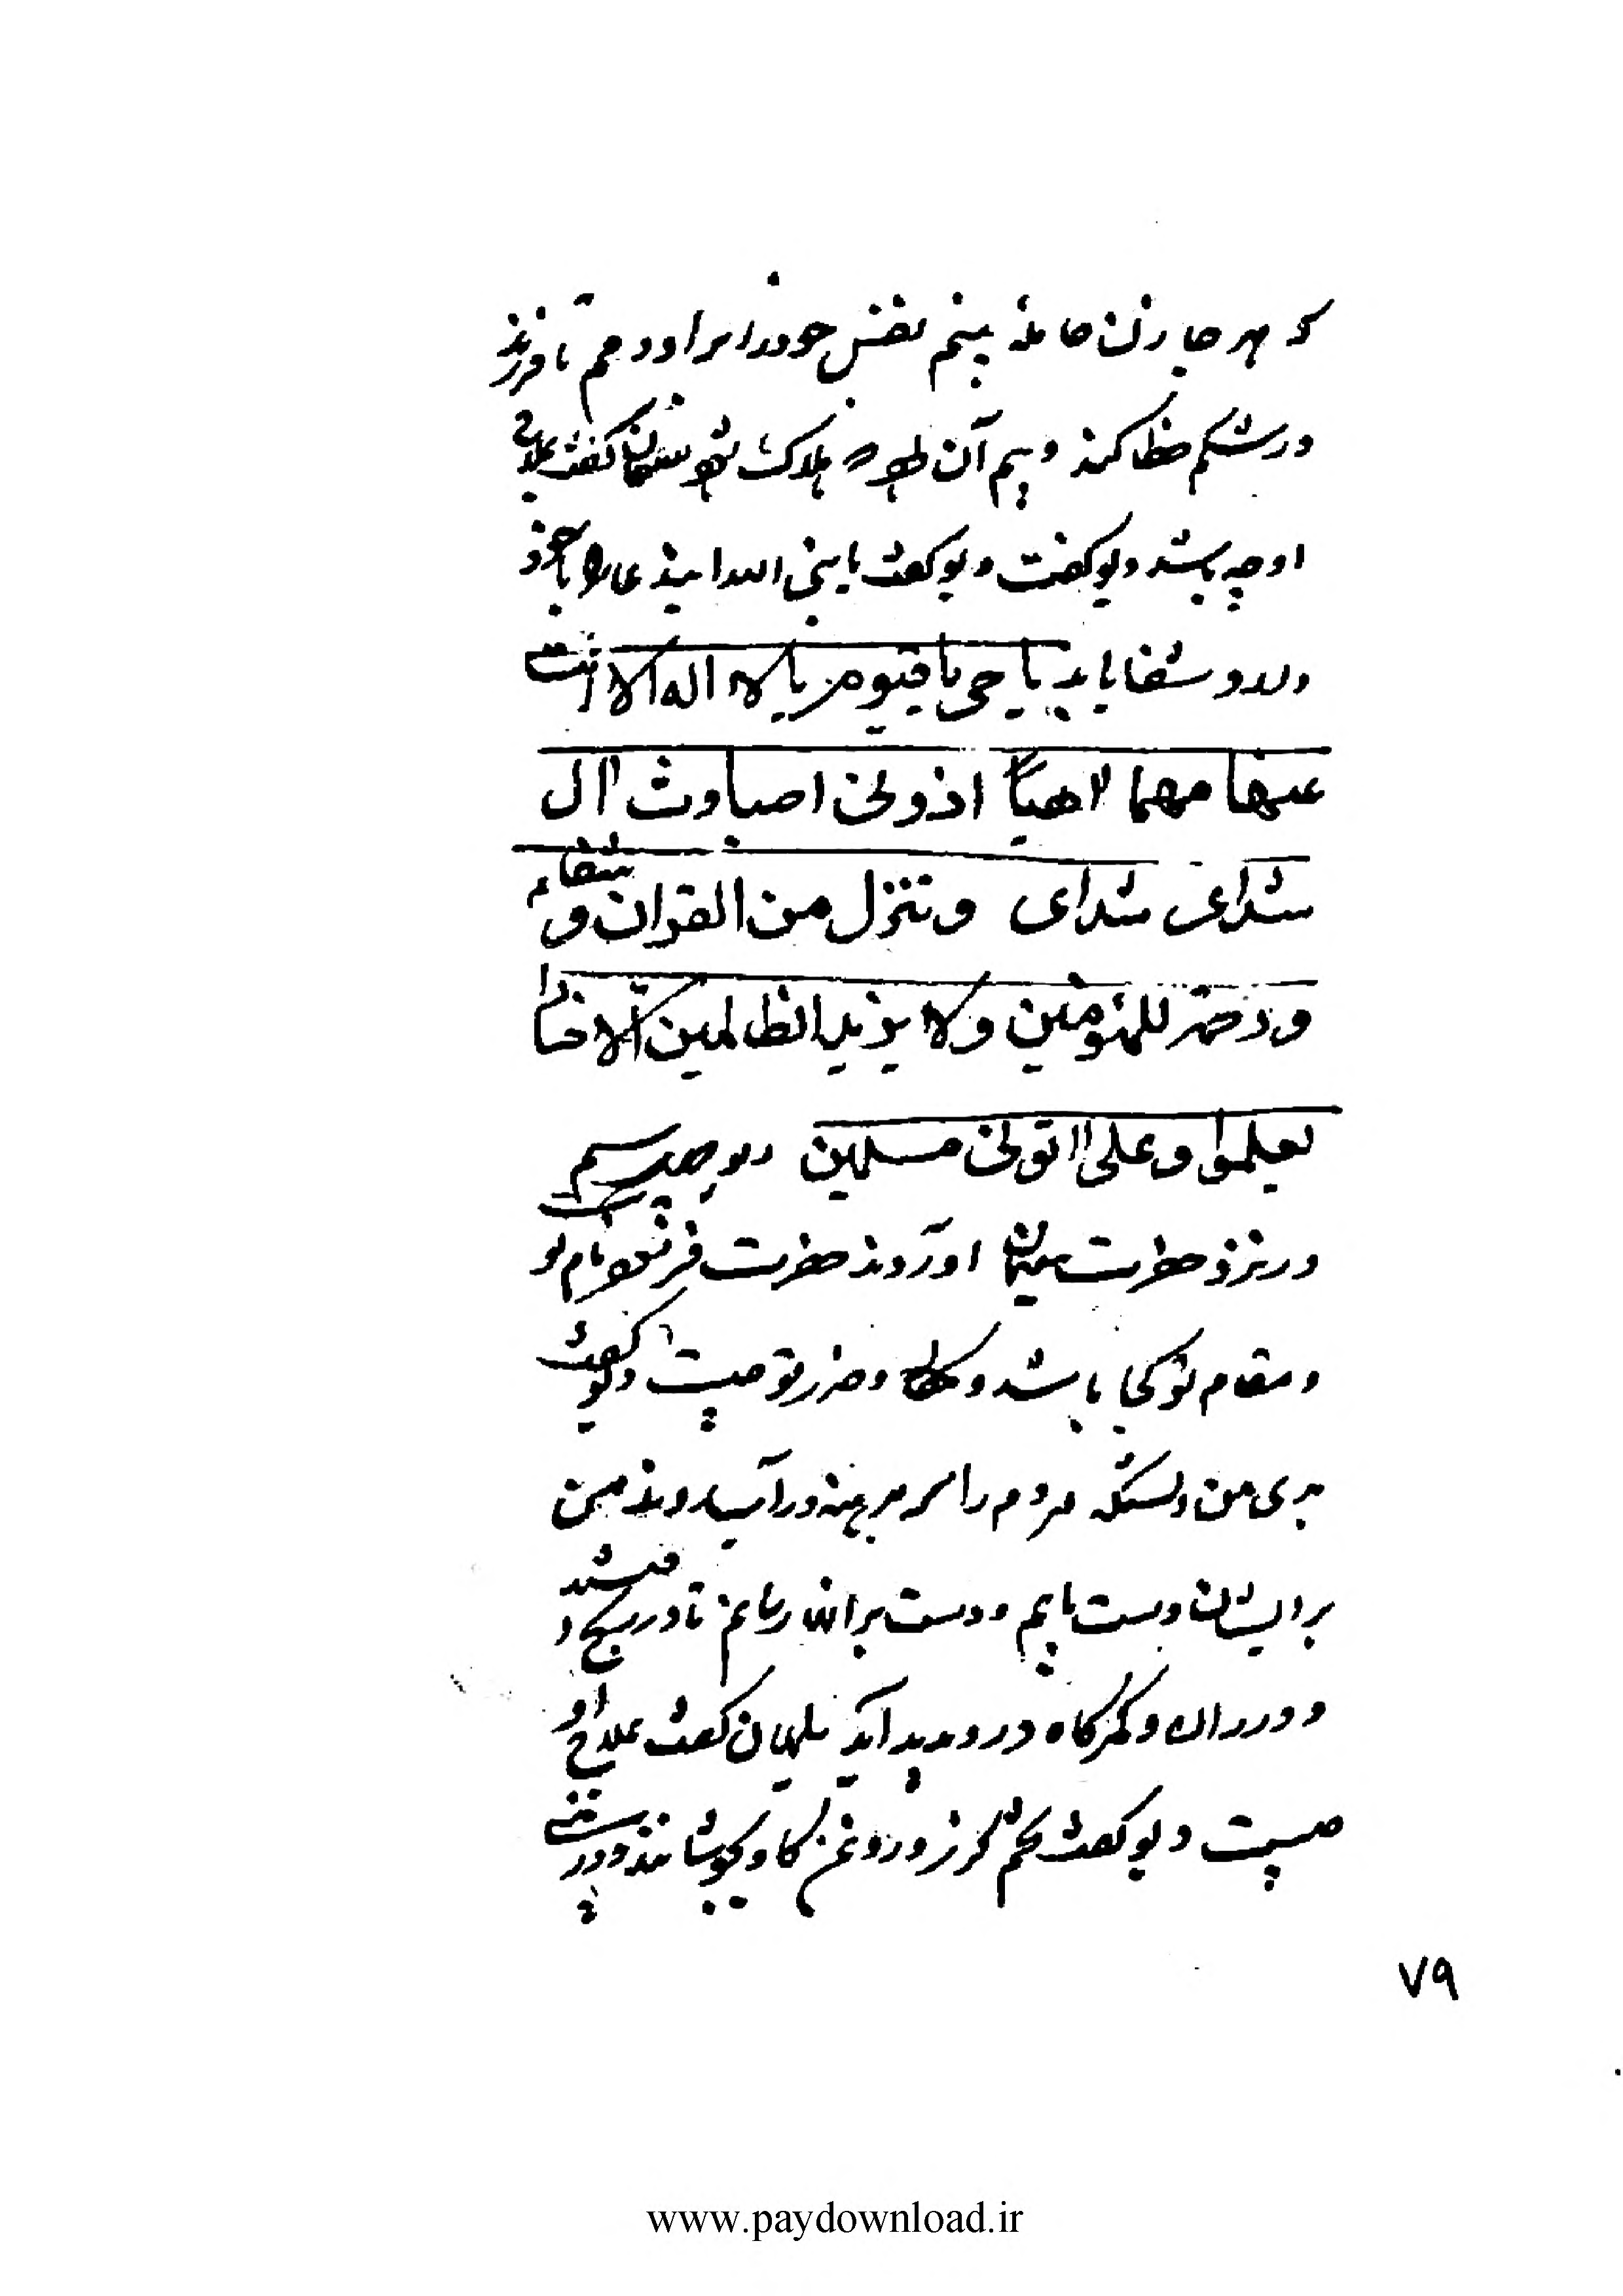 که هر جا زن حامله بینم نفس خود را بر او دمم تا فرزند
در شکم خطا کند و بیم آن طفل هلاک شود سلیمان گفت علاج
او چه باشد دیو گفت دیو گفت یا نبی الله این دعا را با خود
دارد و شفا یابد یا حی یا قیوم یا لا اله الا انت
علیها مهما لاهیا اذونی اصباوث ال
شدای شدای و ننزل من القران و شفاء
و رحمة للمؤمنین و لا یزید الظالمین الا خسارا
تعلموا وعلی اتونی مسلمین دیو سیم
در نزد حضرت سلیمان اوردند حضرت فرمود نام تو
و مقام تو کجا باشد و مکان و ضرر تو چیست دیو گفت
من مردم را سر برهنه در آب روند من
بر ایشان دست یابم و دست بر رسانم تا در میشد
و در ران و کمرگاه درد پدید آید سلیمان گفت علاج او
چیست دیو گفت تخم گزر و روغن گاو بجوشانند و در
۷۹
www.paydownload.ir